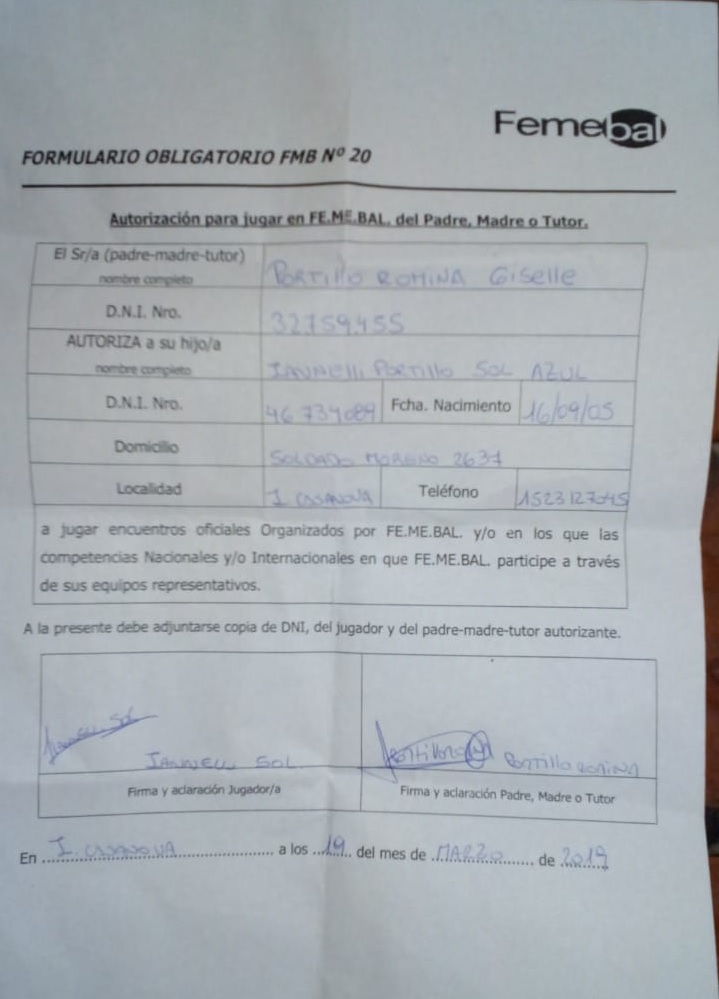 Femebal
FORMULARIO OBLIGATORIO FMB Nº 20
Autorización para jugar en FE.ME.BAL. del Padre, Madre o Tutor.
El Sr/a (padre-madre-tutor) PORTILLO ROMINA GISELLE
nombre completo
D.N.I. Nro. 32759455
AUTORIZA a su hijo/a
nombre completo IANNELLI PORTILLO SOL AZUL
D.N.I. Nro. 46739089 Fcha. Nacimiento 16/09/05
Domicilio SOLDADO MORENO 2637
Localidad I CASANOVA Teléfono 1523127045
a jugar encuentros oficiales Organizados por FE.ME.BAL. y/o en los que las
competencias Nacionales y/o Internacionales en que FE.ME.BAL. participe a través
de sus equipos representativos.
A la presente debe adjuntarse copia de DNI, del jugador y del padre-madre-tutor autorizante.
IANNELLI SOL PORTILLO ROMINA
Firma y aclaración Jugador/a Firma y aclaración Padre, Madre o Tutor
En I. CASANOVA a los 19 del mes de MARZO de 2019